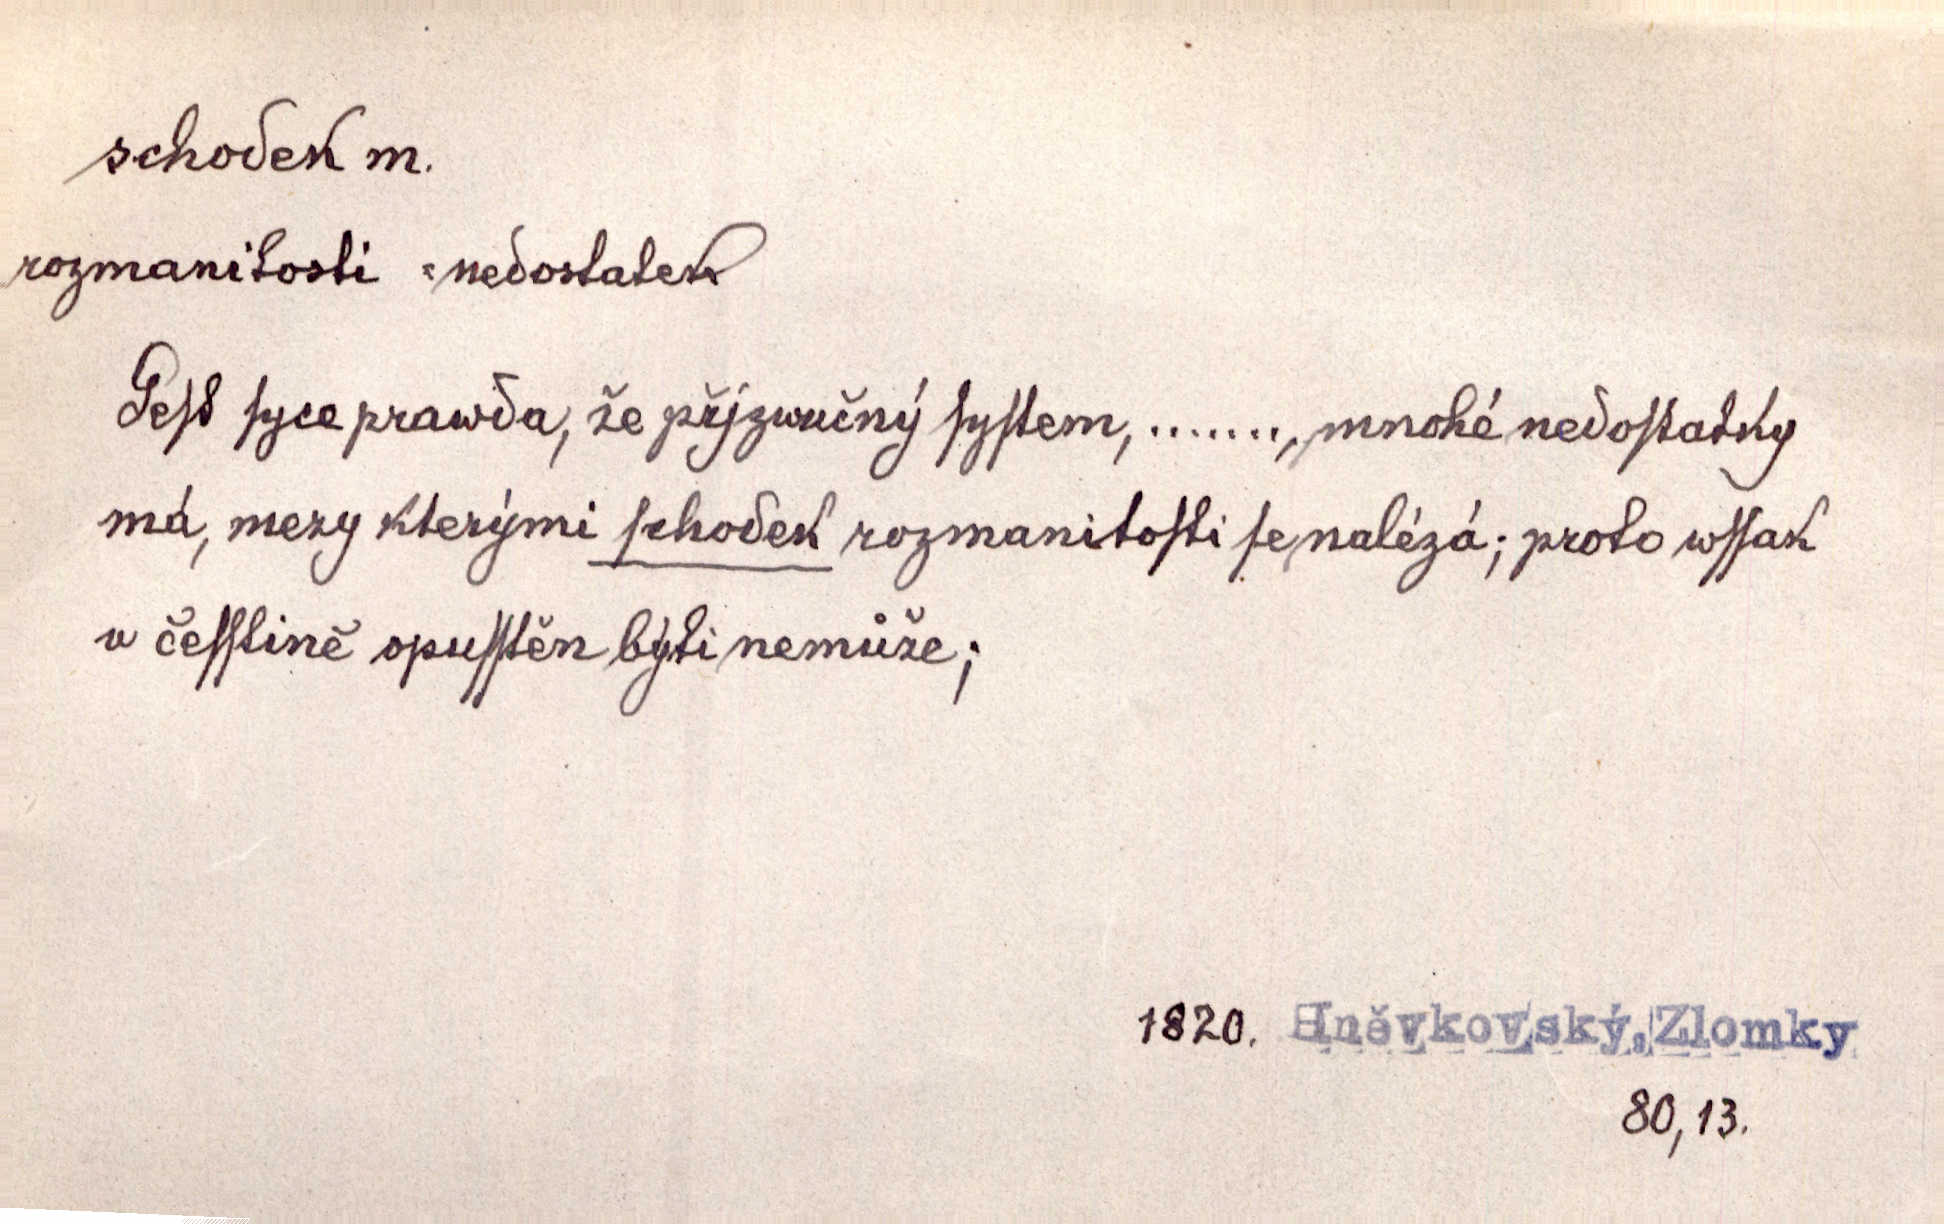 schodek m.
rozmanitosti = nedostatek
Gest syce prawda, že přjzwučný system, ......., mnohé nedostatky
má, mezy kterými schodek rozmanitosti se nalézá; proto wssak
w česstině opusstěn býti nemůže;
1820. Hněvkovský, Zlomky
80, 13.